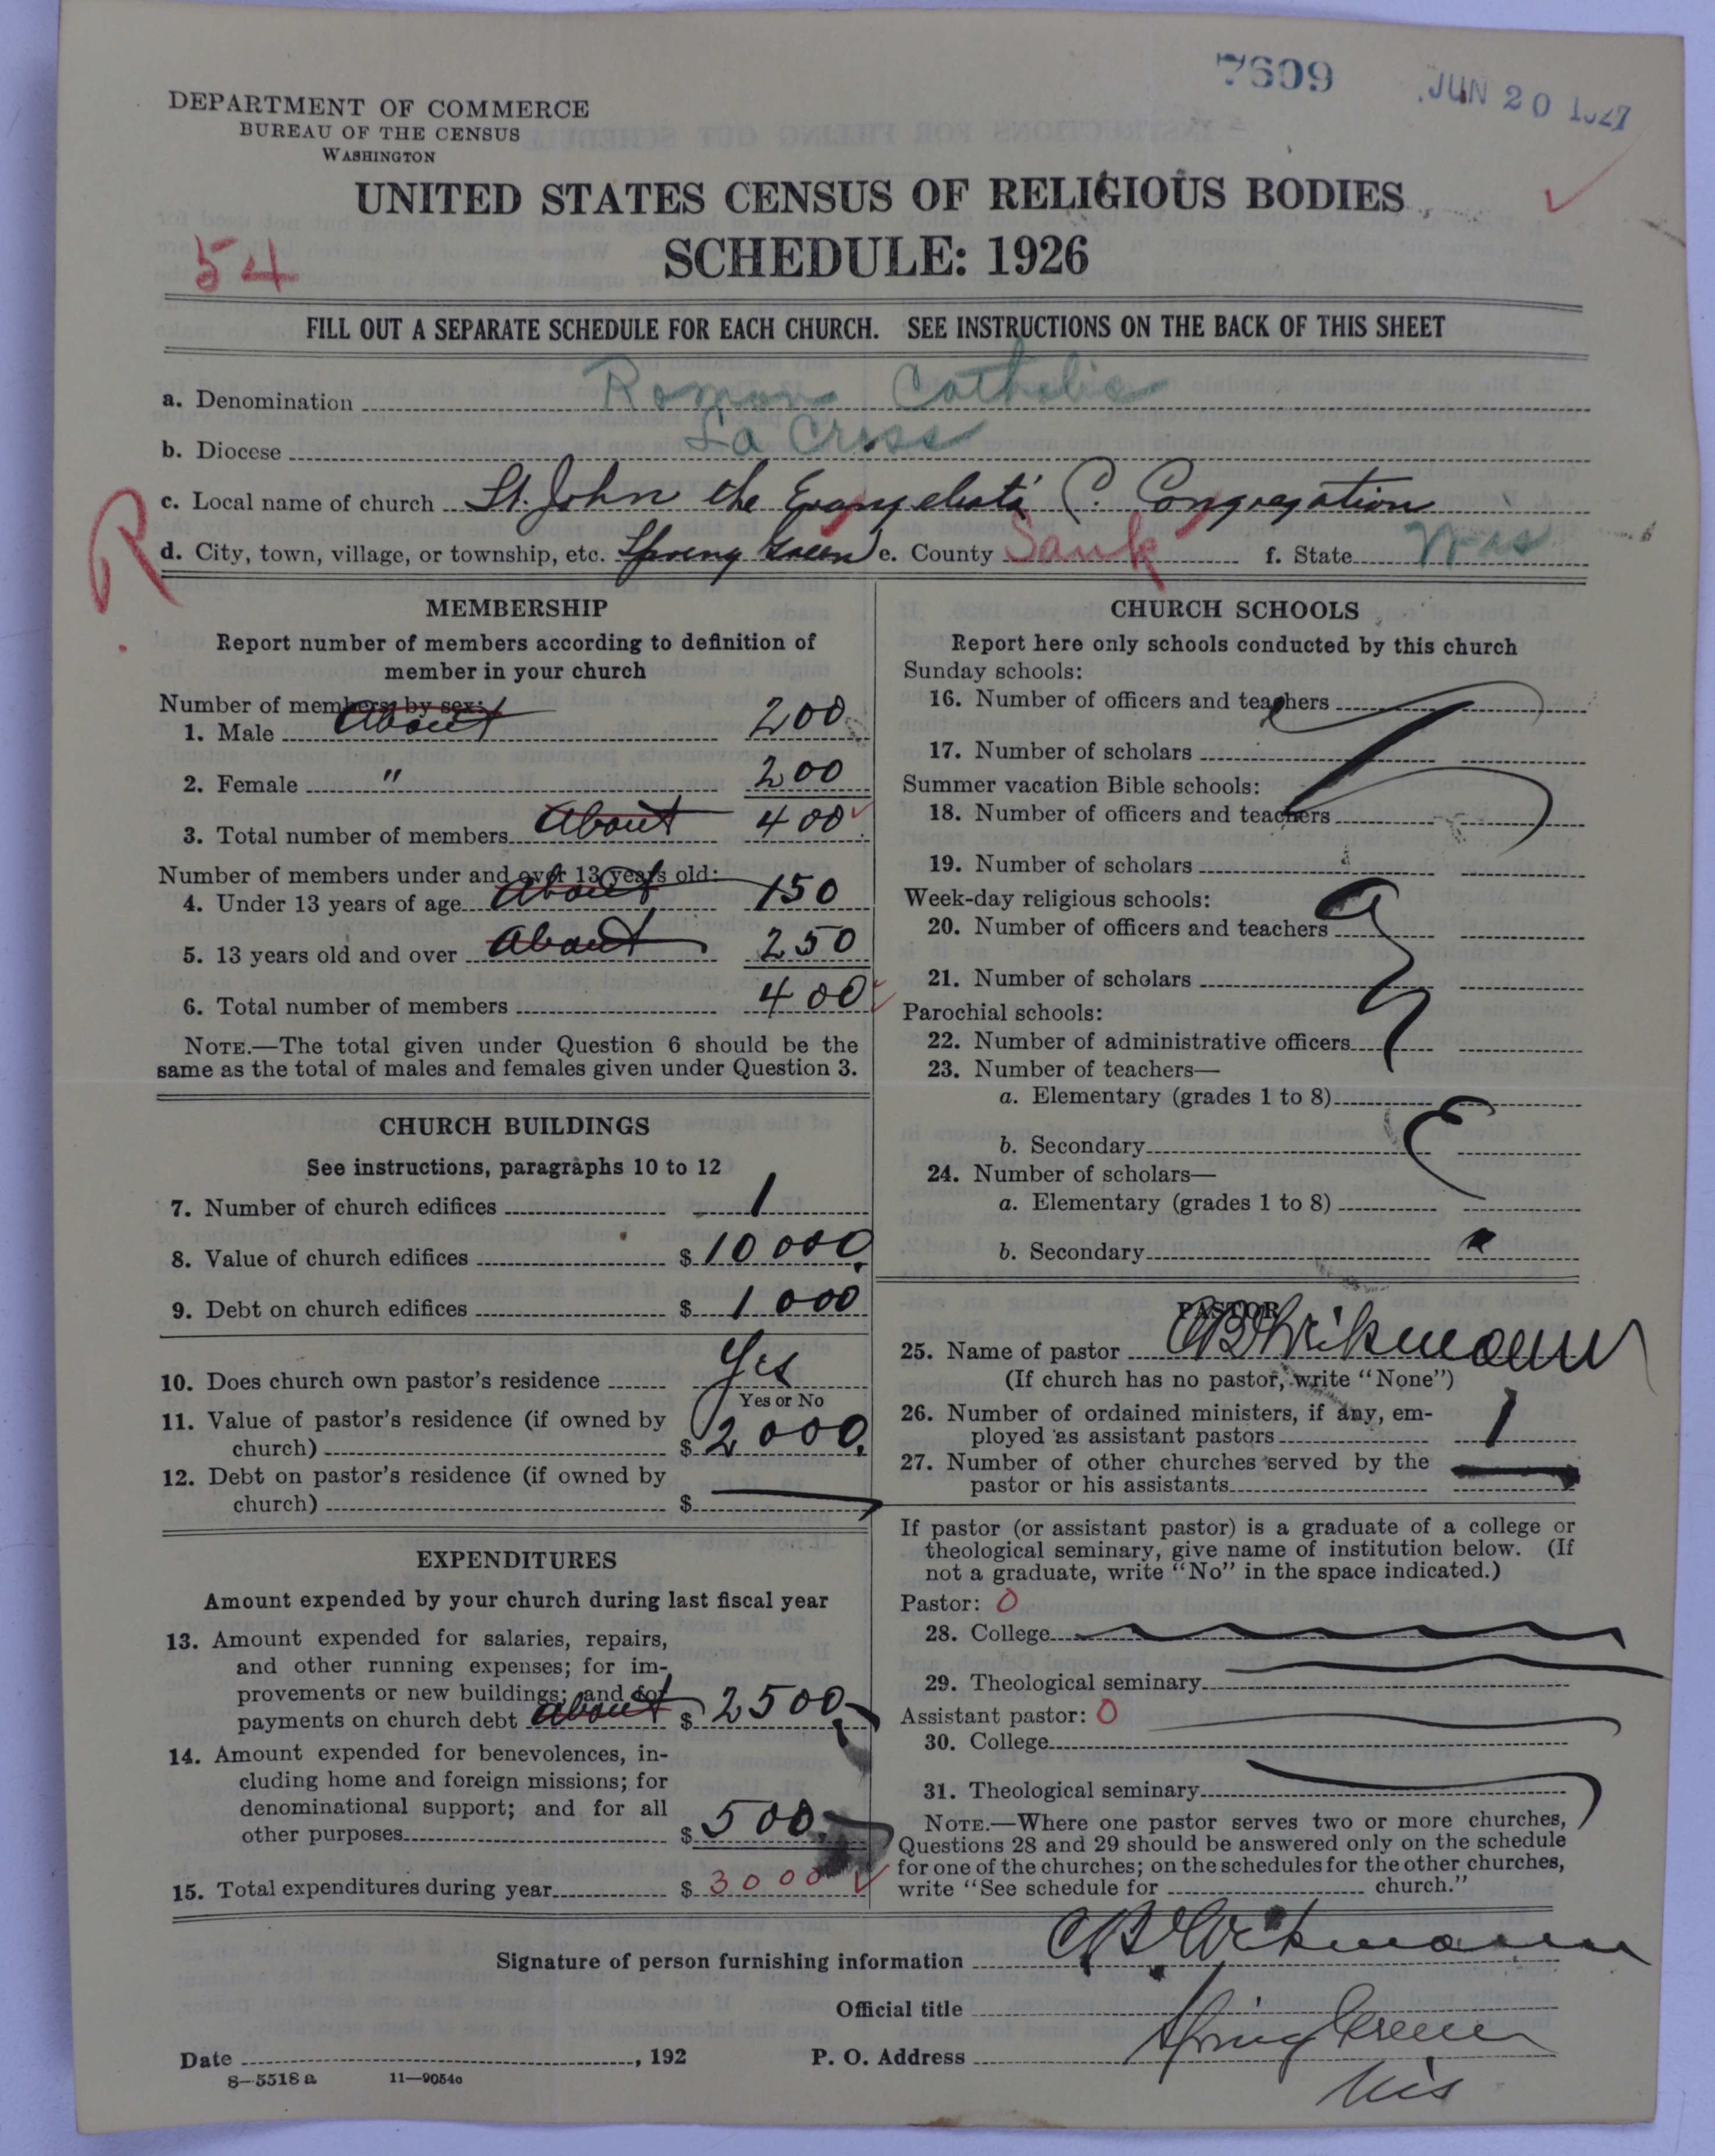 7609 JUN 20 1927
DEPARTMENT OF COMMERCE
BUREAU OF THE CENSUS
WASHINGTON
UNITED STATES CENSUS OF RELIGIOUS BODIES
SCHEDULE: 1926
54
FILL OUT A SEPARATE SCHEDULE FOR EACH CHURCH. SEE INSTRUCTIONS ON THE BACK OF THIS SHEET
a. Denomination Roman Catholic
b. Diocese La Cross
c. Local name of church St. John the Evangelists C. Congregation
R
d. City, town, village, or township, etc. Spring Green e. County Sauk f. State Wis
MEMBERSHIP
Report number of members according to definition of
member in your church
Number of members by sex:
1. Male About 200
2. Female " 200
3. Total number of members About 400
Number of members under and over 13 years old:
4. Under 13 years of age About 150
5. 13 years old and over About 250
6. Total number of members 400
NOTE.—The total given under Question 6 should be the
same as the total of males and females given under Question 3.
CHURCH BUILDINGS
See instructions, paragraphs 10 to 12
7. Number of church edifices 1
8. Value of church edifices $ 10000
9. Debt on church edifices $ 1000
10. Does church own pastor's residence Yes
Yes or No
11. Value of pastor's residence (if owned by
church) $ 2000.
12. Debt on pastor's residence (if owned by
church) $ —
EXPENDITURES
Amount expended by your church during last fiscal year
13. Amount expended for salaries, repairs,
and other running expenses; for im-
provements or new buildings; and for
payments on church debt about $ 2500
14. Amount expended for benevolences, in-
cluding home and foreign missions; for
denominational support; and for all
other purposes $ 500
15. Total expenditures during year $ 3000
CHURCH SCHOOLS
Report here only schools conducted by this church
Sunday schools:
16. Number of officers and teachers
17. Number of scholars
Summer vacation Bible schools:
18. Number of officers and teachers
19. Number of scholars
Week-day religious schools:
20. Number of officers and teachers
21. Number of scholars
Parochial schools:
22. Number of administrative officers
23. Number of teachers—
a. Elementary (grades 1 to 8)
b. Secondary
24. Number of scholars—
a. Elementary (grades 1 to 8)
b. Secondary
PASTOR
25. Name of pastor
(If church has no pastor, write "None")
26. Number of ordained ministers, if any, em-
ployed as assistant pastors 1
27. Number of other churches served by the
pastor or his assistants —
If pastor (or assistant pastor) is a graduate of a college or
theological seminary, give name of institution below. (If
not a graduate, write "No" in the space indicated.)
Pastor: 0
28. College
29. Theological seminary
Assistant pastor: 0
30. College
31. Theological seminary
NOTE.—Where one pastor serves two or more churches,
Questions 28 and 29 should be answered only on the schedule
for one of the churches; on the schedules for the other churches,
write "See schedule for church."
Signature of person furnishing information
Official title
Date , 192 P. O. Address Spring Green
Wis
8—5518 a 11—9054c